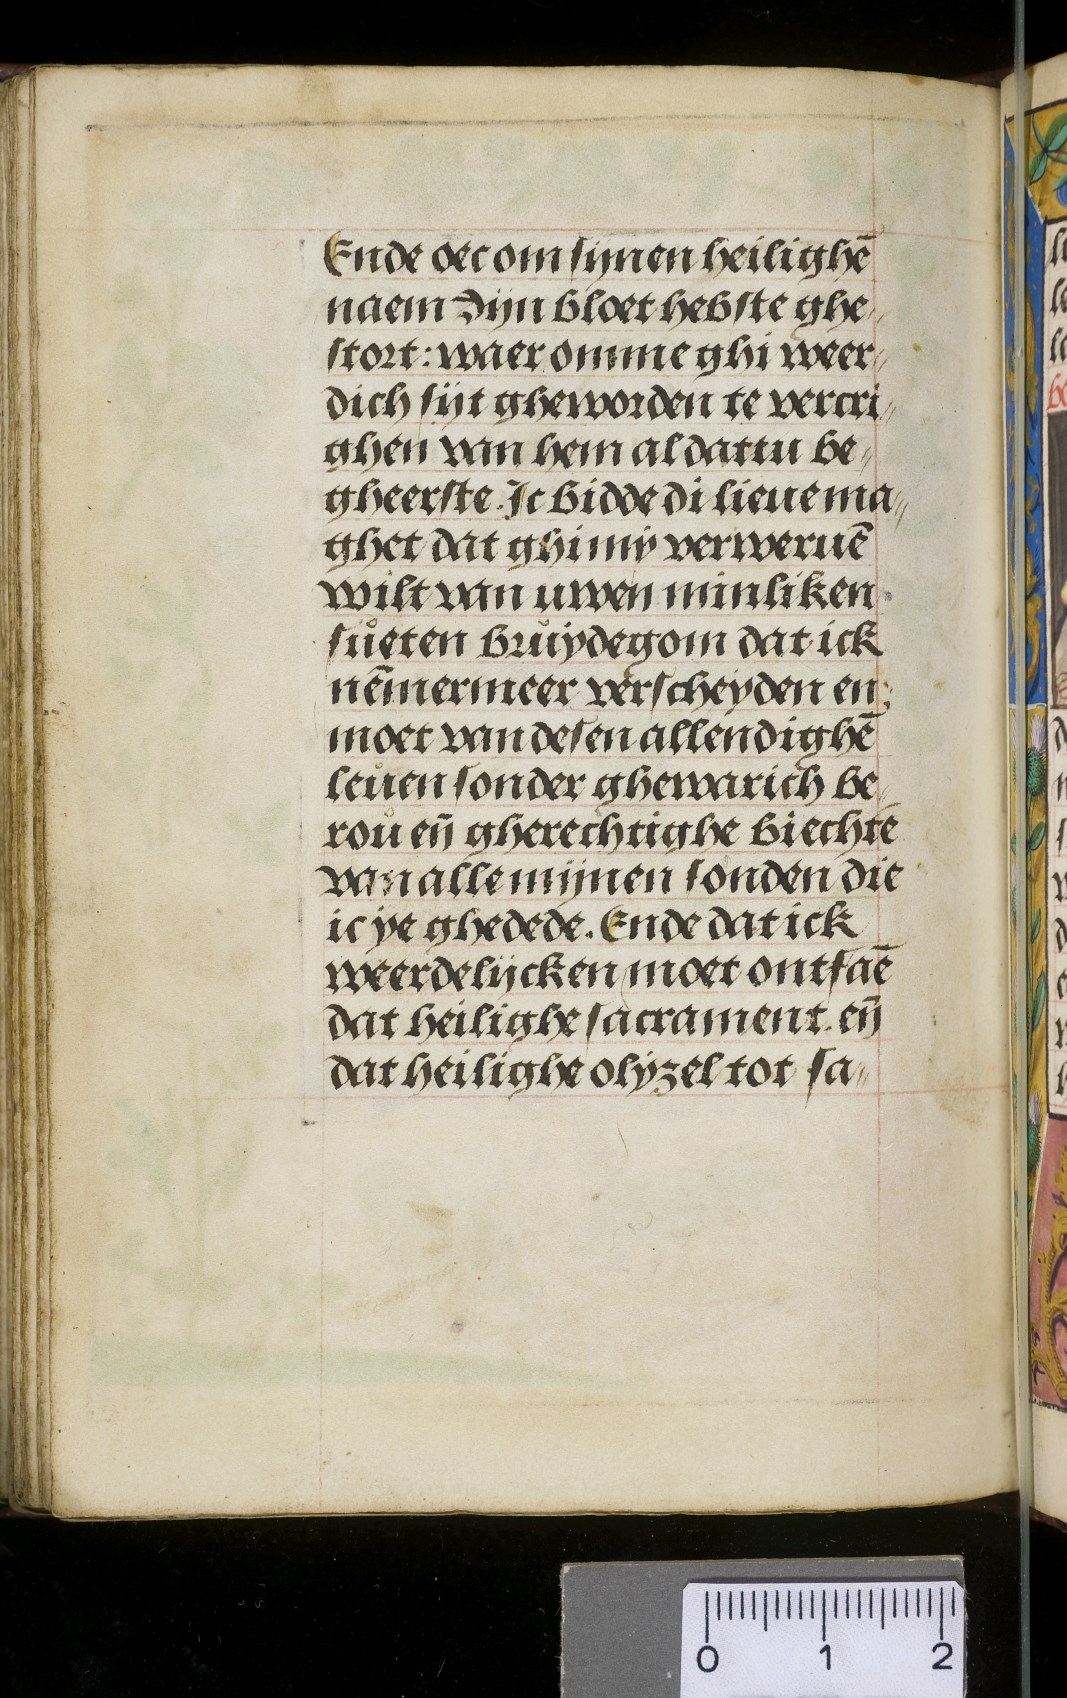 Ende oec om sijnen heilighē
naem Dijn bloet hebste ghe„
stort: waer omme ghi weer„
dich sijt gheworden te vercri„
ghen van hem al dattu be„
gheerste. Ic bidde di lieue ma„
ghet dat ghi mij verweruē
wilt van uwen minliken
sůeten brůijdegom dat ick
nēmermeer verscheyden en
moet van desen allendighē
leuen sonder ghewarich be„
roů en̄ gherechtighe biechte
van alle mijnen sonden die
ic ye ghedede. Ende dat ick
weerdelijcken moet ontfaē
dat heilighe sacrament. en̄
dat heilighe olyzel tot sa„
0 1 2